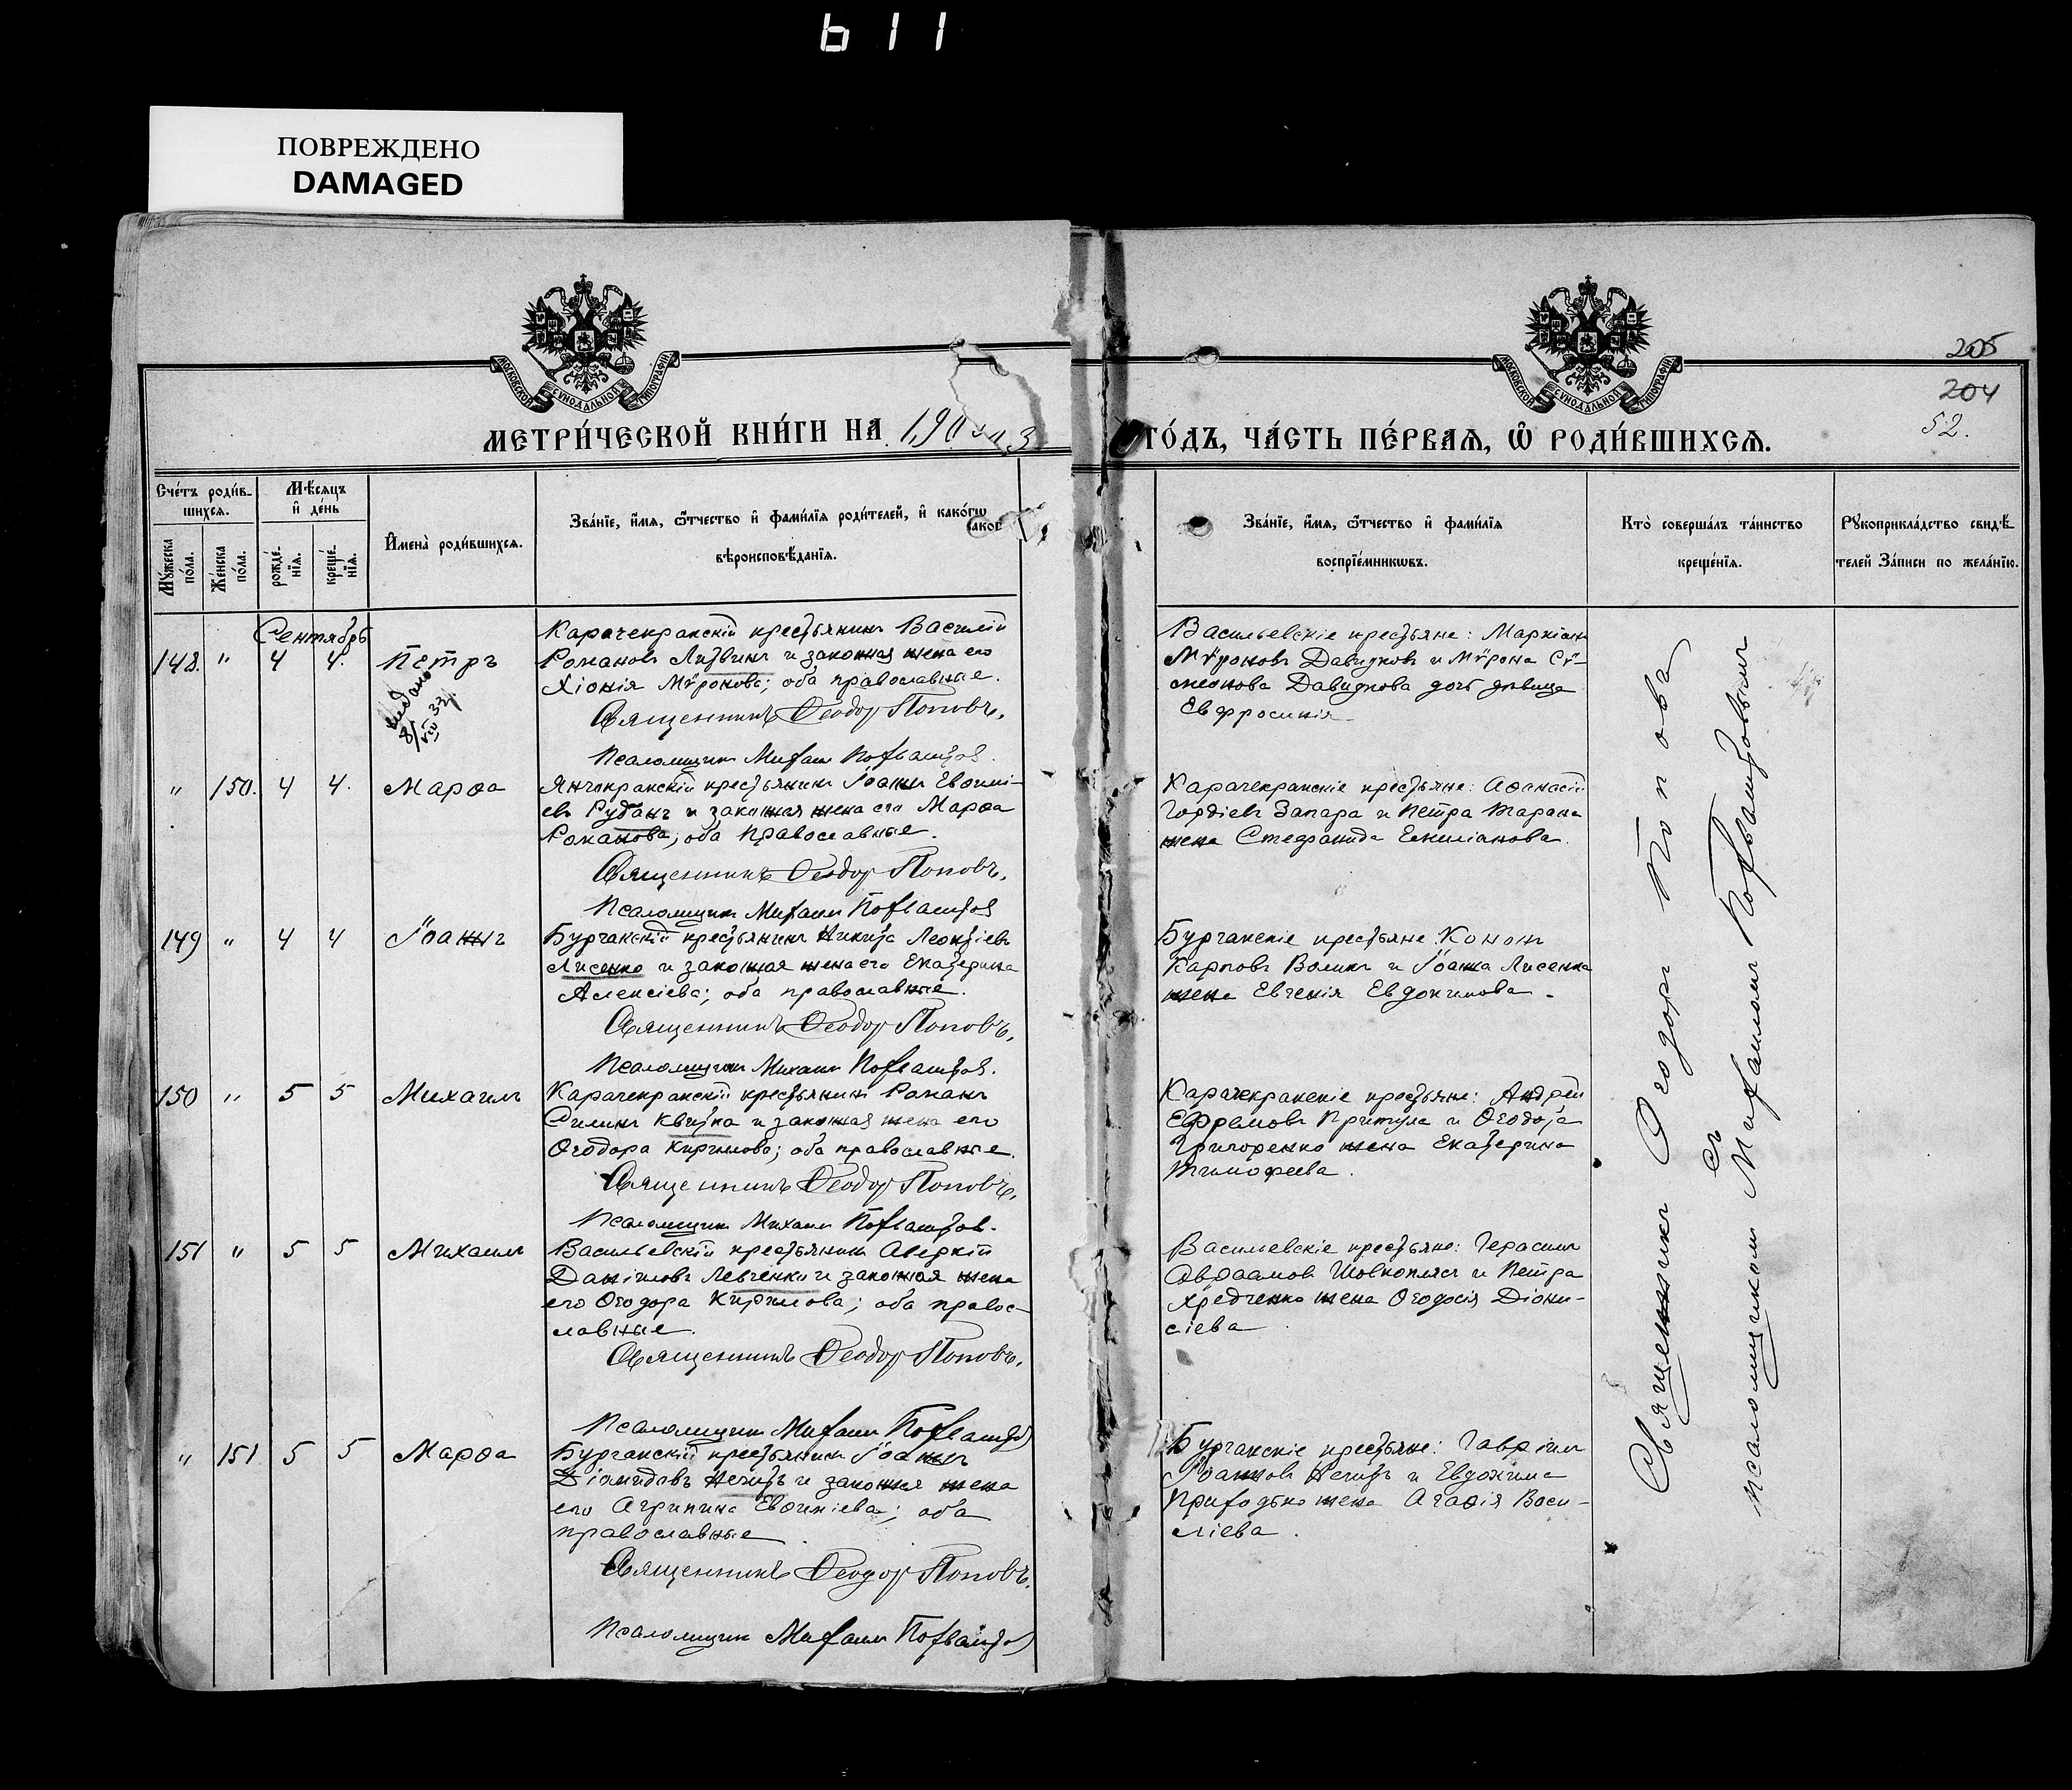 611
ПОВРЕЖДЕНО
DAMAGED
МОСКОВСКОЙ СѴНОДАЛЬНОЙ ТИПОГРАФІИ
МОСКОВСКОЙ СѴНОДАЛЬНОЙ ТИПОГРАФІИ
205
204
52.
МЕТРИ́ЧЕСКОЙ КНИ́ГИ НА 1903
ГО́ДЪ, ЧА́СТЬ ПЕ́РВАѦ, Ѽ РОДИ́ВШИХСѦ.
Сче́тъ роди́в-
шихсѧ.
Мѣ́сѧцъ
и҆ де́нь
Мꙋ́жеска по́ла.
Же́нска по́ла.
рожде́-
нїѧ.
креще́-
нїѧ.
И҆мена̀ роди́вшихсѧ.
Зва́нїе, и҆́мѧ, ѻ҆́тчество и҆ фами́лїѧ роди́телей, и҆ како́гѡ
вѣроисповѣ́данїѧ.
Зва́нїе, и҆́мѧ, ѻ҆́тчество и҆ фами́лїѧ
воспрїе́мникѡвъ.
Кто̀ соверша́лъ та́инство
креще́нїѧ.
Рꙋкоприкла́дство свидѣ́-
телей За́писи по жела́нїю.
Сентябрь
148. " 4 4. Петръ
Карачекракскій крестьянинъ Василій
Романовъ Литвинъ и законная жена его
Хіонія Мѵронова; оба православные.
Священникъ Ѳеодоръ Поповъ.
Псаломщикъ Михаилъ
Васильевскіе крестьяне: Маркіанъ
Мѵроновъ Давидковъ и Мѵрона Сѵ-
меонова Давидкова дочь дѣвица
Евфросинія
видано
8/VIII 32
" 150. 4 4. Марѳа
Янчекракскій крестьянинъ Іоаннъ Евѳимі-
евъ Рубанъ и законная жена его Марѳа
Романова; оба православные.
Священникъ Ѳеодоръ Поповъ.
Псаломщикъ Михаилъ
Карачекракскіе крестьяне: Аѳанасій
Гордіевъ Запара и Петра Тарана
жена Стефанида Емиліанова.
149 " 4 4 Іоаннъ
Бурчакскій крестьянинъ Никита Леонтіевъ
Лисенко и законная жена его Екатерина
Алексіева; оба православные.
Священникъ Ѳеодоръ Поповъ.
Псаломщикъ Михаилъ
Бурчакскіе крестьяне Кононъ
Карповъ Воликъ и Іоанна Лисенка
жена Евгенія Евдокимова.
150 " 5 5 Михаилъ
Карачекракскій крестьянинъ Романъ
Силинъ Квитка и законная жена его
Ѳеодора Кириллова; оба православные.
Священникъ Ѳеодоръ Поповъ.
Псаломщикъ Михаилъ
Карачекракскіе крестьяне: Андрей
Ефремовъ Притула и Ѳеодота
Григоренко жена Екатерина
Тимофеева.
151 " 5 5 Михаилъ
Васильевскій крестьянинъ Аверкій
Даніиловъ Левченко и законная жена
его Ѳеодора Кириллова; оба правос-
лавные.
Священникъ Ѳеодоръ Поповъ.
Псаломщикъ Михаилъ
Васильевскіе крестьяне: Герасимъ
Авраамовъ Шовкоплясъ и Петра
жена Ѳеодосія Діони-
сіева
" 151 5 5 Марѳа
Бурчакскій крестьянинъ Іоаннъ
Діомидовъ и законная жена
его Агрипина Евѳиміева; оба
православные.
Священникъ Ѳеодоръ Поповъ.
Псаломщикъ Михаилъ
Бурчакскіе крестьяне: Гавріилъ
Іоанновъ и Евдокима
Приходько жена Агаѳія Васи-
ліева.
Священникъ Ѳеодоръ Попова
съ
псаломщикомъ Михаиломъ